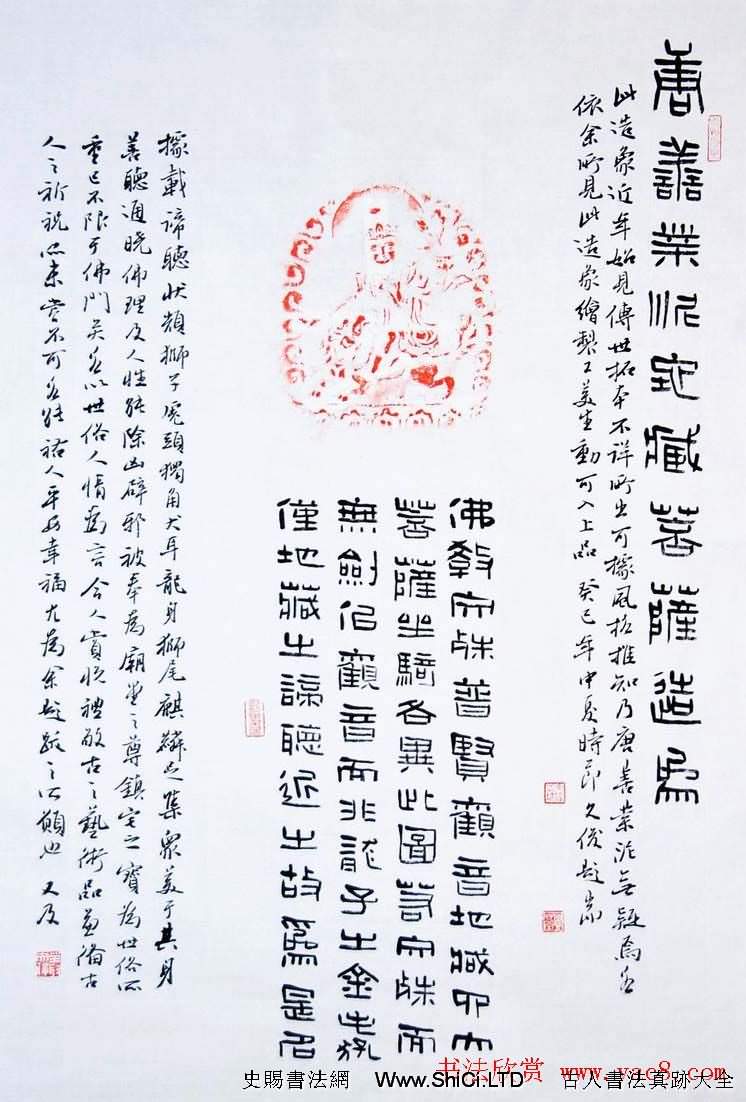 唐善業泥地藏菩薩造象
此造象近年始見傳世拓本不詳所出可據風格推知乃唐善業泥無疑為
依余所見此造象繪製工美生動可入上品癸巳年中夏時節久俊題
佛教文殊普賢觀音地藏四大
菩薩坐騎各異此圖若文殊而
無劍侣觀音而非龍子之金毛犼
僅地藏之諦聽近之故為是名
據載諦聽狀類獅子虎頭獨角犬耳龍身獅尾麒麟足集眾美于其身
善聽通曉佛理及人性能除凶辟邪被奉為廟堂之尊鎮宅之寶為世俗所
重已不限于佛門矣若以世俗人情而言令人賞悅禮敬古之藝術品兼備古
人之祈祝似未嘗不可若能祐人平安幸福尤為余題跋之所願也又及
书法欣赏 www.yac8.com
史賜書法網 Www.ShiCi.LTD 古人書法真跡大全